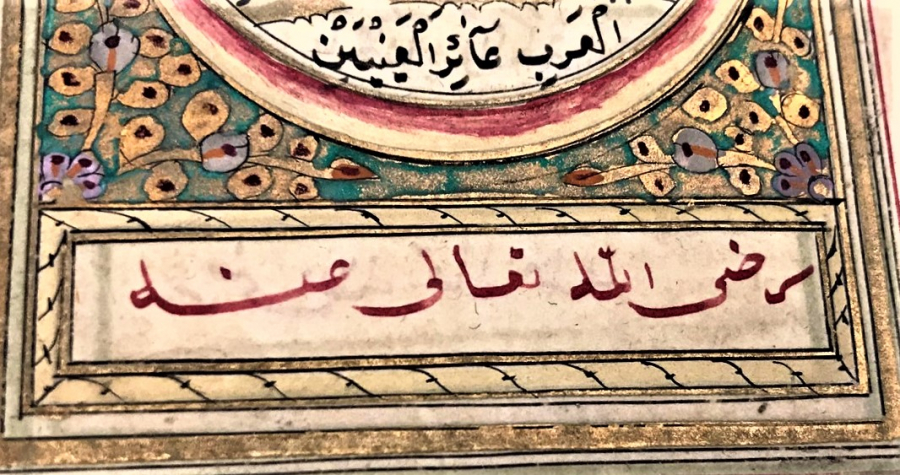 الْعَرَبِ غَآئِرَ الْعَيْنَيْنِ
رضى اللّه تعالى عنه